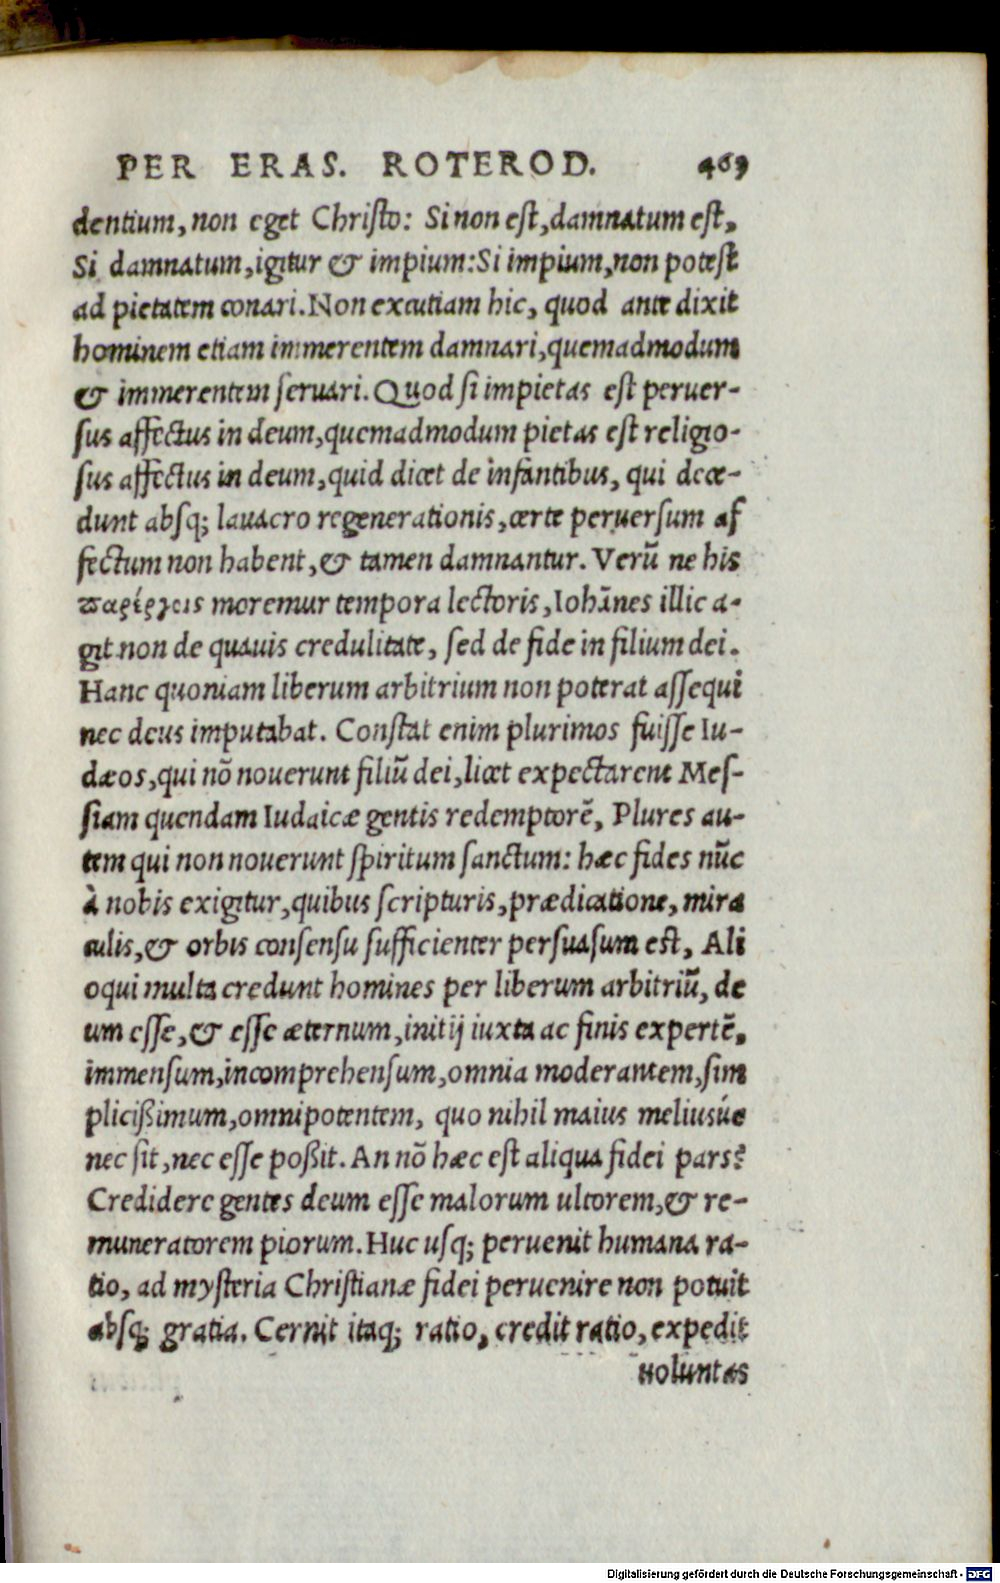 PER ERAS. ROTEROD. 469
dentium, non eget Christo: Si non est, damnatum est,
Si damnatum, igitur & impium: Si impium, non potest
ad pietatem conari. Non excutiam hic, quod ante dixit
hominem etiam immerentem damnari, quemadmodum
& immerentem seruari. Quod si impietas est peruer-
sus affectus in deum, quemadmodum pietas est religio-
sus affectus in deum, quid dicet de infantibus, qui dece-
dunt absq; lauacro regenerationis, certe peruersum af
fectum non habent, & tamen damnantur. Verū ne his
παρέργοις moremur tempora lectoris, Iohānes illic a-
git non de quauis credulitate, sed de fide in filium dei.
Hanc quoniam liberum arbitrium non poterat assequi
nec deus imputabat. Constat enim plurimos fuisse Iu-
dæos, qui nō nouerunt filiū dei, licet expectarent Mes-
siam quendam Iudaicæ gentis redemptorē, Plures au-
tem qui non nouerunt spiritum sanctum: hæc fides nūc
à nobis exigitur, quibus scripturis, prædicatione, mira
culis, & orbis consensu sufficienter persuasum est, Ali
oqui multa credunt homines per liberum arbitriū, de
um esse, & esse æternum, initij iuxta ac finis expertē,
immensum, incomprehensum, omnia moderantem, sim
plicißimum, omnipotentem, quo nihil maius meliusúe
nec sit, nec esse poßit. An nō hæc est aliqua fidei pars?
Credidere gentes deum esse malorum ultorem, & re-
muneratorem piorum. Huc usq; peruenit humana ra-
tio, ad mysteria Christianæ fidei peruenire non potuit
absq; gratia. Cernit itaq; ratio, credit ratio, expedit
uoluntas
Digitalisierung gefördert durch die Deutsche Forschungsgemeinschaft - DFG